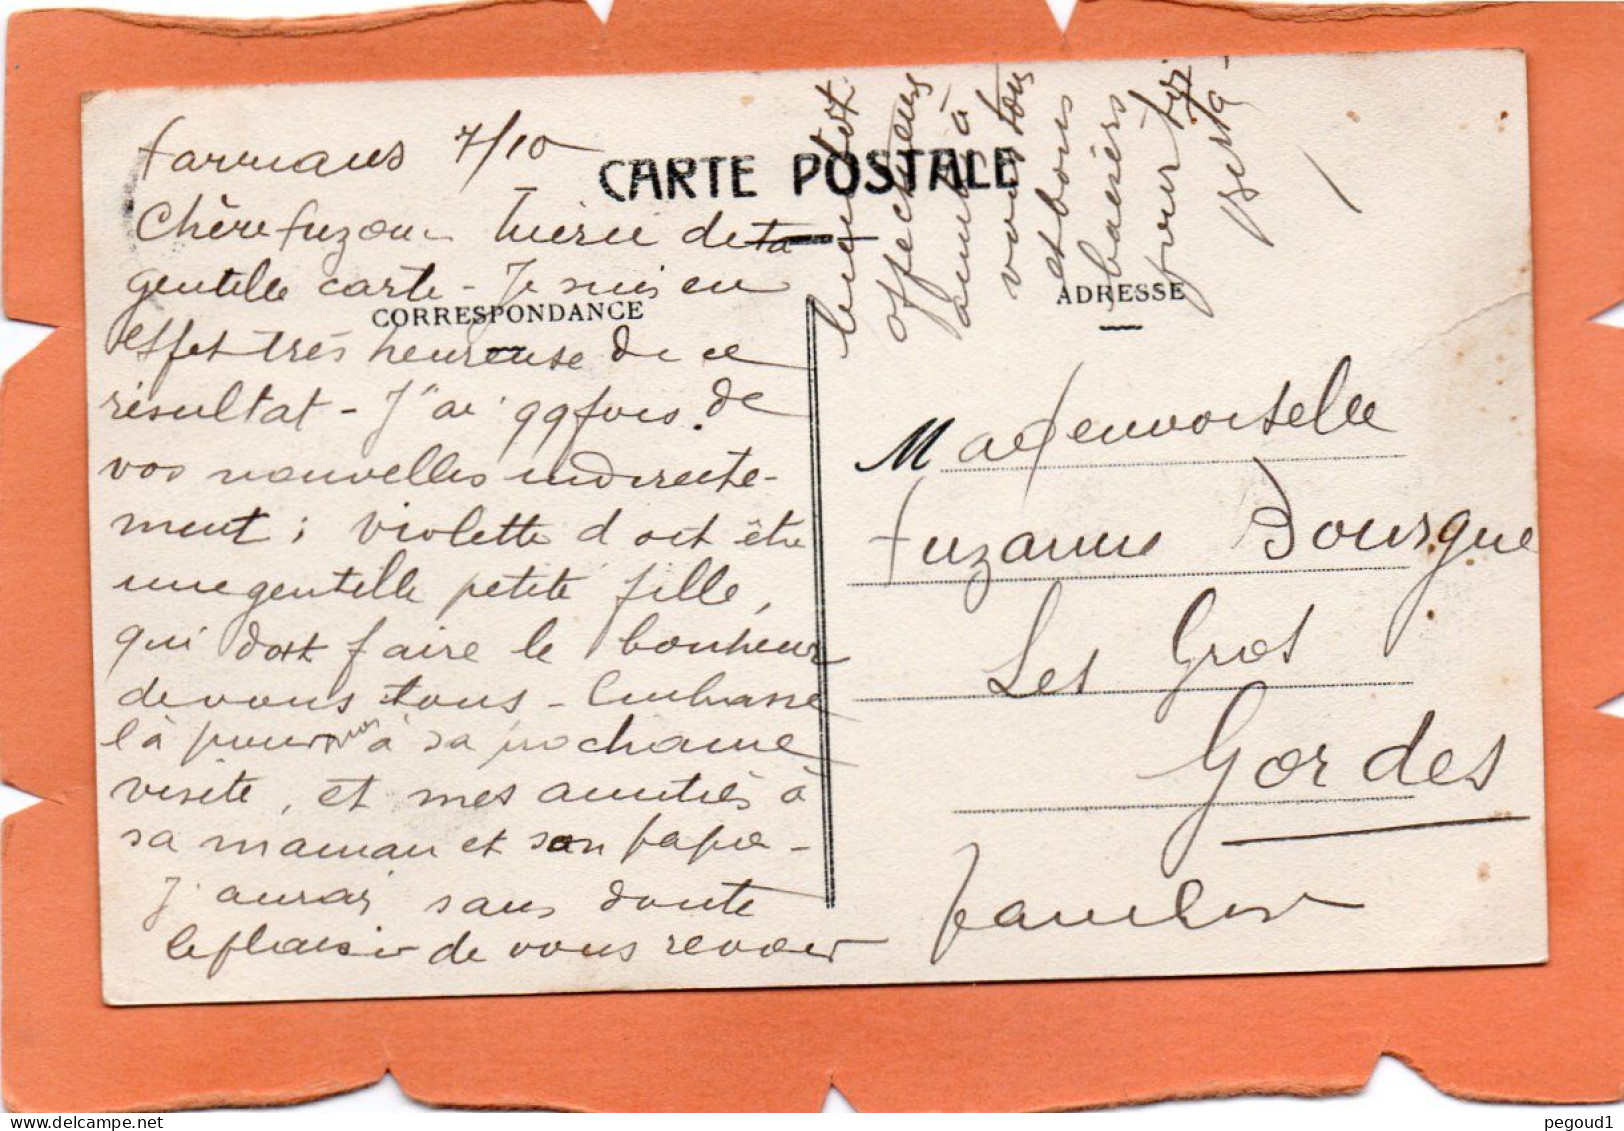 Sarrians 7/10
CARTE POSTALE
Chère Suzon - Merci de ta
gentille carte - Je suis en
CORRESPONDANCE
effet très heureuse de ce
résultat - J'ai qqfois de
vos nouvelles indirecte-
ment ; Violette doit être
une gentille petite fille,
qui doit faire le bonheur
de vous tous - Embrasse
là pour moi à sa prochaine
visite, et mes amitiés à
sa maman et son papa -
J'aurai sans doute
le plaisir de vous revoir
bientôt.
affectueuse
amitié à
vous tous
et bons
baisers
pour toi
Berta
ADRESSE
Mademoiselle
Suzanne Bourgue
Les Gros
Gordes
Vaucluse
pegoud1